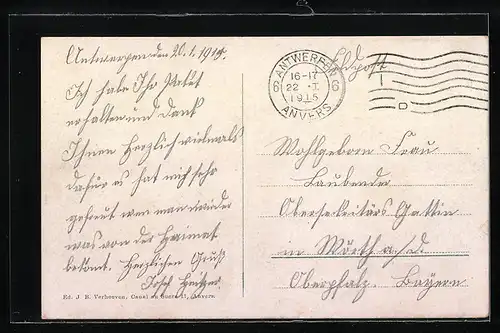 Antwerpen den 20.1.1915.
Ich habe Ihr Paket
erhalten und Dank
Ihnen Herzlich vielmals
dafür es hat mich sehr
gefreut wen man wieder
was von der Heimat
bekomt. Herzlichen Gruß
Josef
Ed. J. B. Verhoeven, Canal au Sucre 11, Anvers.
Feldpost
ANTWERPEN
6 16-17 6
22 I
1915
ANVERS
D
Wohlgeboren Frau
Laubender
Obersekretärs Gattin
in Wörth a/d
Oberpfalz. Bayern